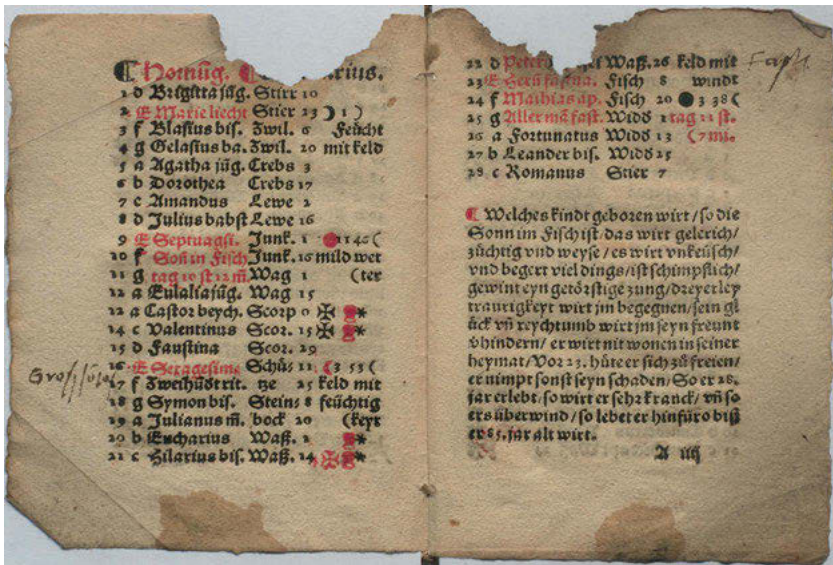 Hornũg.
1 d Brigitta jũg. Stier 10
2 E Marie liecht Stier 23 ☽ 1 )
3 f Blasius bis. Zwil. 6 Feücht
4 g Gelasius ba. Zwil. 20 mit keld
5 a Agatha jũg. Crebs 3
6 b Dorothea Crebs 17
7 c Amandus Lewe 2
8 d Julius babst Lewe 16
9 E Septuagsi. Junk. 1 1146 (
10 f Soñ in Fisch Junk. 16 mild wet
11 g tag 10 st 12 m̃. Wag 1 (ter
12 a Eulalia jũg. Wag 15
12 a Castor beych. Scorp 0 ✠ *
14 c Valentinus Scor. 15 ✠ *
15 d Faustina Scor. 29
16 E Sexagesime Schüt 11 ( 3 53 (
17 f Zweihũdt rit. tze 25 keld mit
18 g Symon bis. Stein: 8 feüchtig
19 a Julianus m̃. bock 20 (keyt
20 b Eucharius Waß. 2 *
21 c Hilarius bis. Waß. 14 ✠ *
22 d Peter Waß. 26 keld mit
23 E Herrũ fastna. Fisch 8 windt
24 f Mathias ap. Fisch 20 ● 3 38 (
25 g Aller mã fast. Widd 1 tag 11 st.
26 a Fortunatus Widd 13 ( 7 mi.
27 b Leander bis. Widd 25
28 c Romanus Stier 7
Welches kindt geboren wirt / so die
Sonn im Fisch ist / das wirt gelerich /
züchtig vnd weyse / es wirt vnkeüsch /
vnd begert viel dings / ist schimpflich /
gewint eyn getörstige zung / dreyerley
traurigkeyt wirt jm begegnen / sein gl
ück vñ reychtumb wirt jm seyn freunt
vhindern / er wirt nit wonen in seiner
heymat / Vor 23. hüte er sich zů freien /
er nimpt sonst seyn schaden / So er 28.
jar erlebt / so wirt er sehr kranck / vñ so
ers überwind / so lebet er hinfüro biß
er 85. jar alt wirt.
A iiij